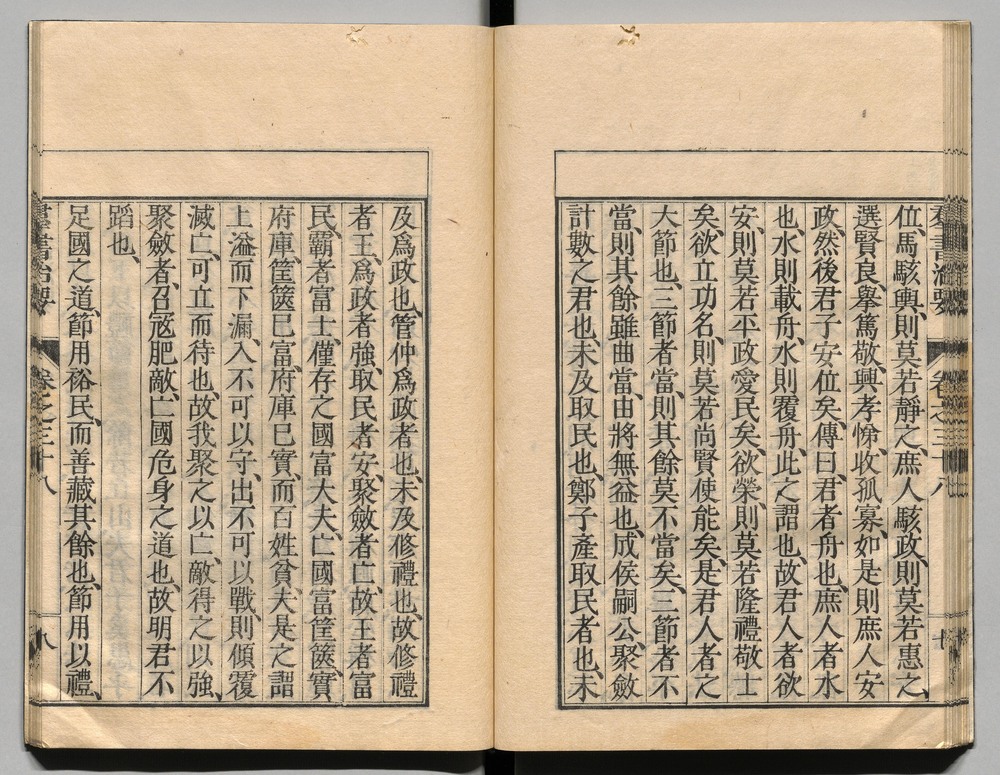 位、馬駭輿、則莫若靜之、庶人駭政、則莫若惠之、
選賢良、舉篤敬、興孝悌、收孤寡、如是則庶人安
政、然後君子安位矣、傳曰、君者舟也、庶人者水
也、水則載舟、水則覆舟、此之謂也、故君人者欲
安、則莫若平政愛民矣、欲榮、則莫若隆禮敬士
矣、欲立功名、則莫若尚賢使能矣、是君人者之
大節也、三節者當、則其餘莫不當矣、三節者不
當、則其餘雖曲當、由將無益也、成侯嗣公、聚斂
計數之君也、未及取民也、鄭子產取民者也、未
及爲政也、管仲爲政者也、未及修禮也、故修禮
者王、爲政者強、取民者安、聚斂者亡、故王者富
民、霸者富士、僅存之國富大夫、亡國富筐篋、實
府庫、筐篋已富、府庫已實、而百姓貧、夫是之謂
上溢而下漏、入不可以守、出不可以戰、則傾覆
滅亡、可立而待也、故我聚之以亡、敵得之以強、
聚斂者、召寇肥敵、亡國危身之道也、故明君不
蹈也、
足國之道、節用裕民、而善藏其餘也、節用以禮、
群書治要
卷之三十八
八